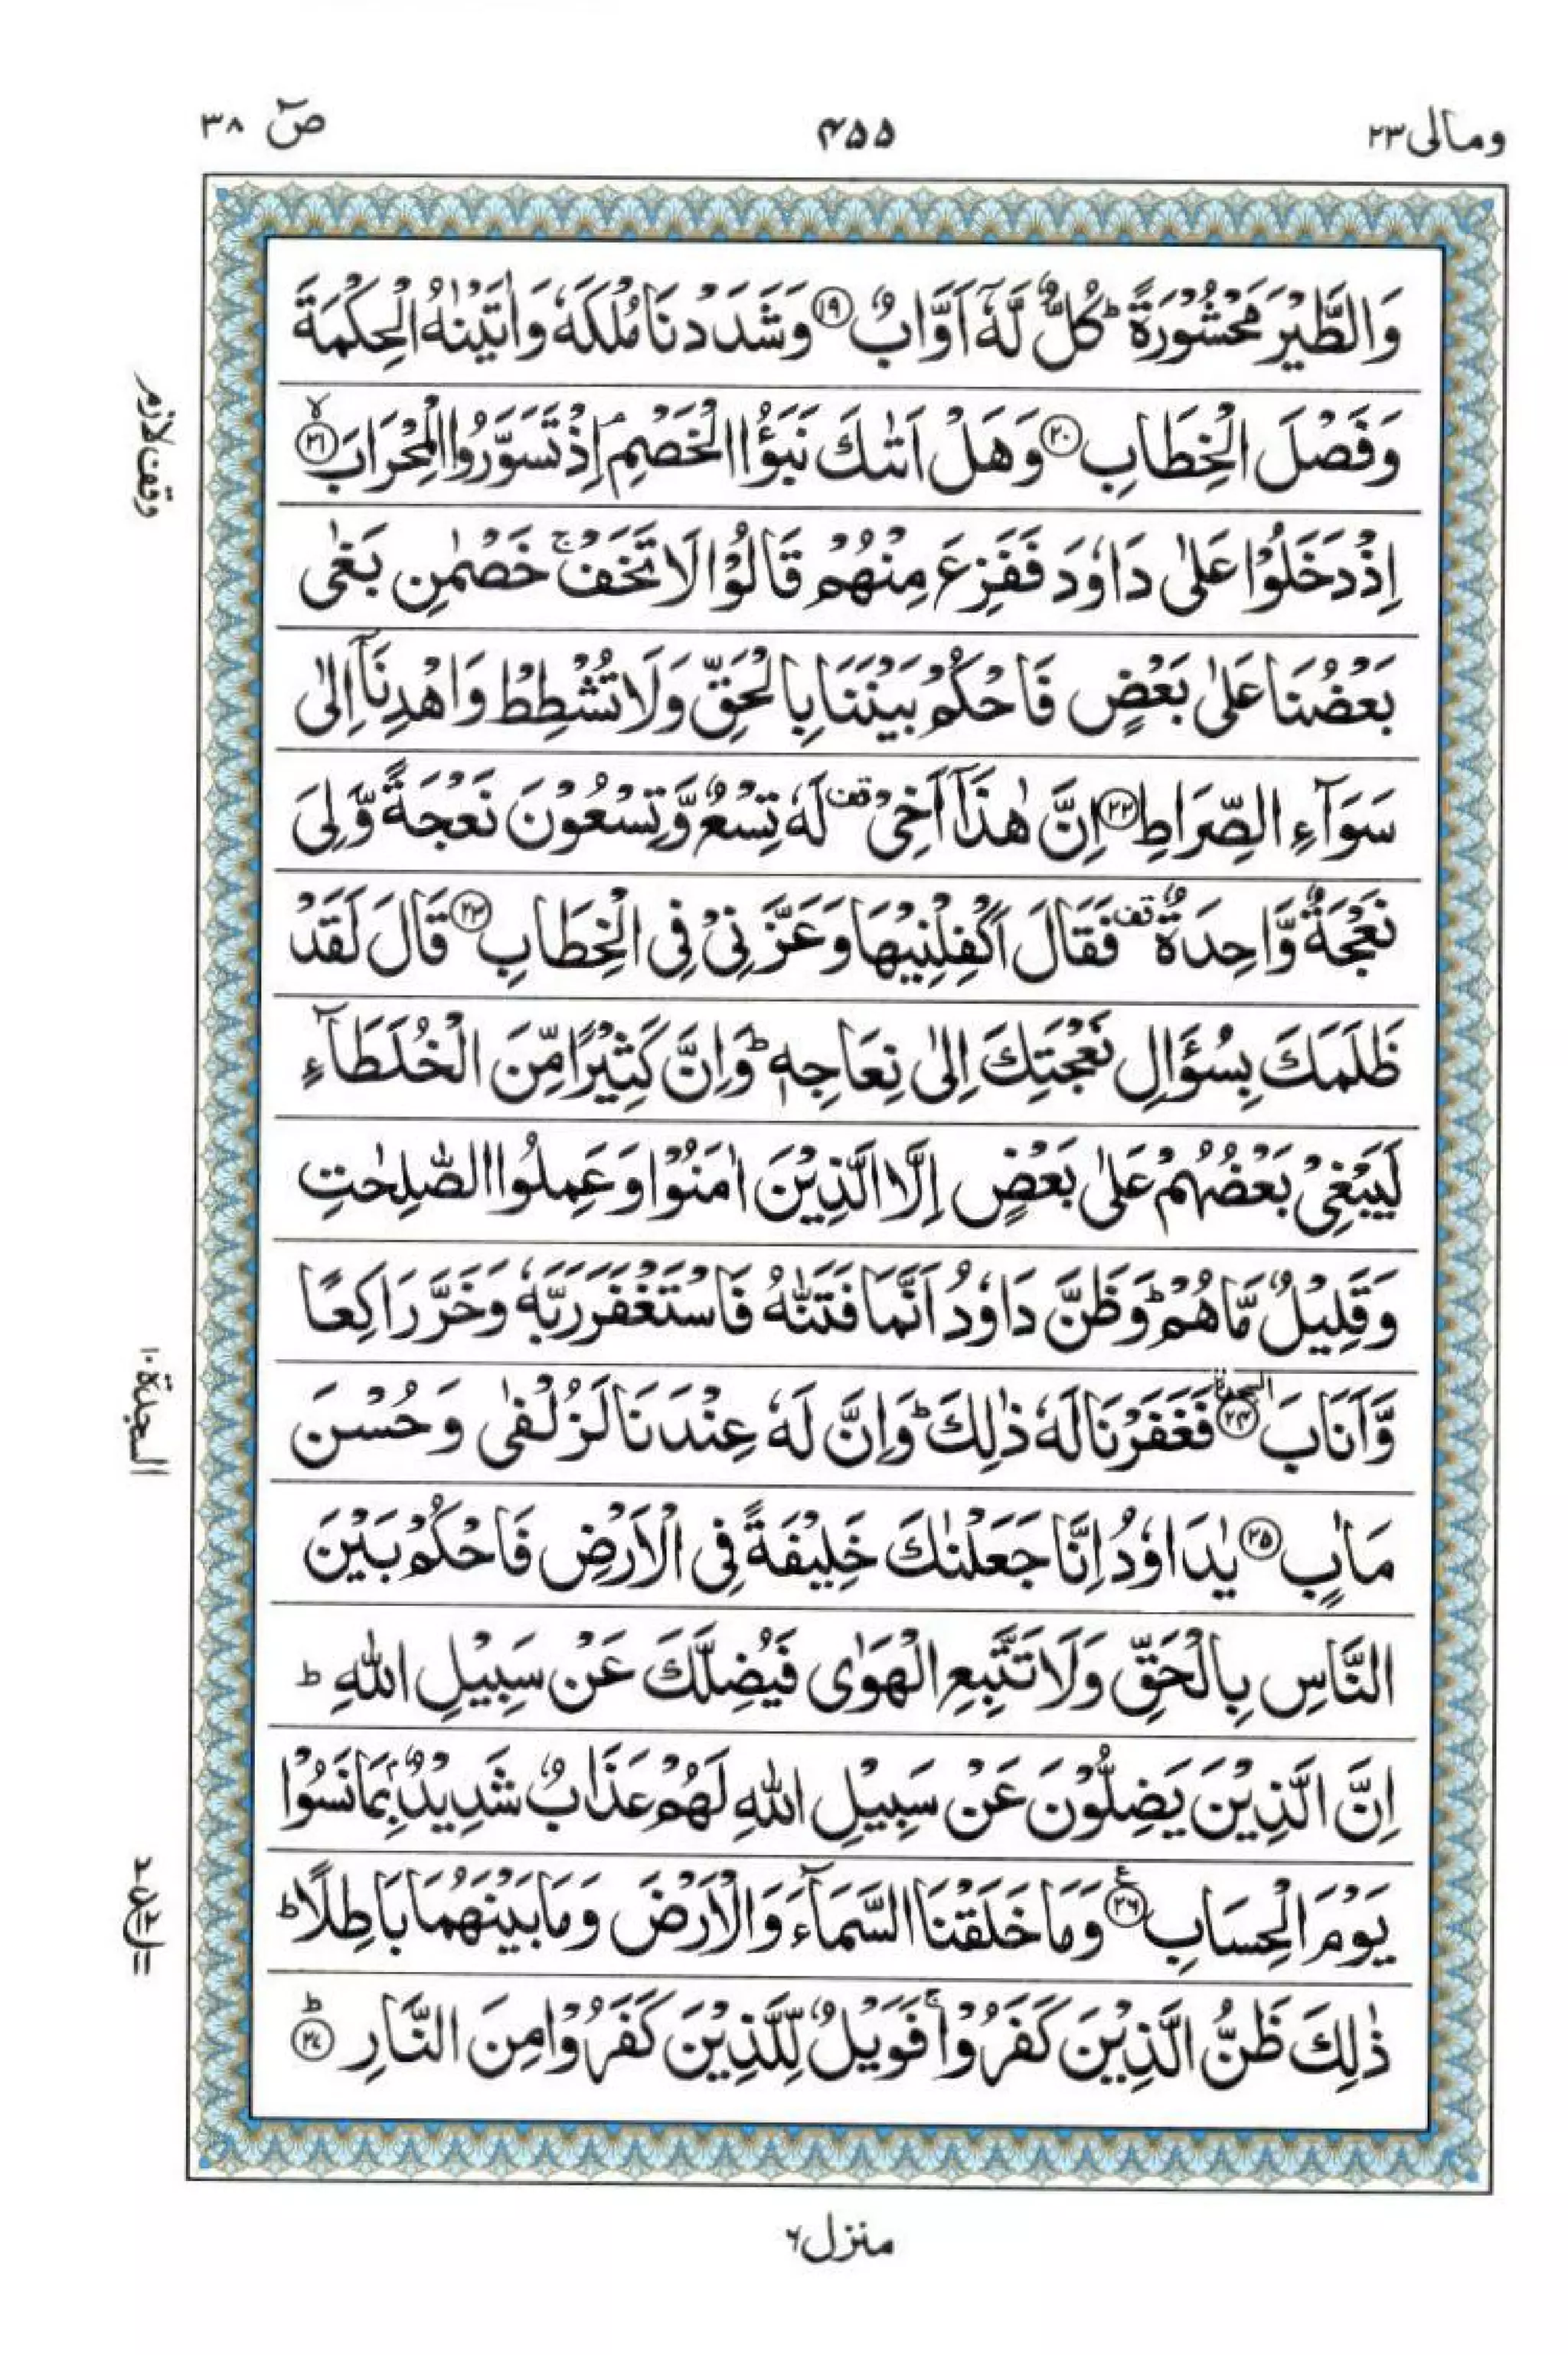 ومالی ۲۳
۴۵۵
صٓ ۳۸
وَالطَّيْرَ مَحْشُوْرَةً ؕ كُلٌّ لَّهٗۤ اَوَّابٌ ۝۱۹ وَشَدَدْنَا مُلْكَهٗ وَاٰتَيْنٰهُ الْحِكْمَةَ
وَفَصْلَ الْخِطَابِ ۝۲۰ وَهَلْ اَتٰىكَ نَبَؤُا الْخَصْمِ ۘ اِذْ تَسَوَّرُوا الْمِحْرَابَ ۙ۝۲۱
اِذْ دَخَلُوْا عَلٰى دَاوٗدَ فَفَزِعَ مِنْهُمْ قَالُوْا لَا تَخَفْ ۚ خَصْمٰنِ بَغٰى
بَعْضُنَا عَلٰى بَعْضٍ فَاحْكُمْ بَيْنَنَا بِالْحَقِّ وَلَا تُشْطِطْ وَاهْدِنَاۤ اِلٰى
سَوَآءِ الصِّرَاطِ ۝۲۲ اِنَّ هٰذَاۤ اَخِيْ قف لَهٗ تِسْعٌ وَّتِسْعُوْنَ نَعْجَةً وَّلِيَ
نَعْجَةٌ وَّاحِدَةٌ قف فَقَالَ اَكْفِلْنِيْهَا وَعَزَّنِيْ فِي الْخِطَابِ ۝۲۳ قَالَ لَقَدْ
ظَلَمَكَ بِسُؤَالِ نَعْجَتِكَ اِلٰى نِعَاجِهٖ ؕ وَاِنَّ كَثِيْرًا مِّنَ الْخُلَطَآءِ
لَيَبْغِيْ بَعْضُهُمْ عَلٰى بَعْضٍ اِلَّا الَّذِيْنَ اٰمَنُوْا وَعَمِلُوا الصّٰلِحٰتِ
وَقَلِيْلٌ مَّا هُمْ ؕ وَظَنَّ دَاوٗدُ اَنَّمَا فَتَنّٰهُ فَاسْتَغْفَرَ رَبَّهٗ وَخَرَّ رَاكِعًا
وَّاَنَابَ ۝۲۴ السجدة فَغَفَرْنَا لَهٗ ذٰلِكَ ؕ وَاِنَّ لَهٗ عِنْدَنَا لَزُلْفٰى وَحُسْنَ
مَاٰبٍ ۝۲۵ يٰدَاوٗدُ اِنَّا جَعَلْنٰكَ خَلِيْفَةً فِي الْاَرْضِ فَاحْكُمْ بَيْنَ
النَّاسِ بِالْحَقِّ وَلَا تَتَّبِعِ الْهَوٰى فَيُضِلَّكَ عَنْ سَبِيْلِ اللّٰهِ ؕ
اِنَّ الَّذِيْنَ يَضِلُّوْنَ عَنْ سَبِيْلِ اللّٰهِ لَهُمْ عَذَابٌ شَدِيْدٌۢ بِمَا نَسُوْا
يَوْمَ الْحِسَابِ ۝۲۶ ع وَمَا خَلَقْنَا السَّمَآءَ وَالْاَرْضَ وَمَا بَيْنَهُمَا بَاطِلًا ؕ
ذٰلِكَ ظَنُّ الَّذِيْنَ كَفَرُوْا ۚ فَوَيْلٌ لِّلَّذِيْنَ كَفَرُوْا مِنَ النَّارِ ؕ۝۲۷
وقف لازم
السجدة ۱۰
منزل ۶